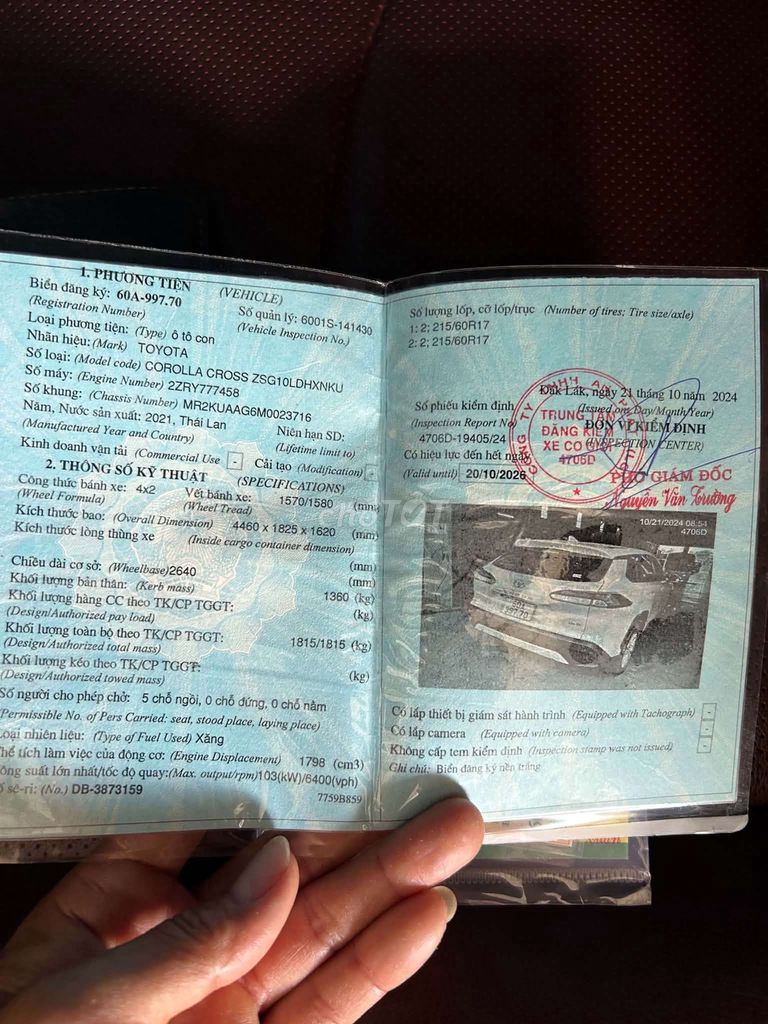 1. PHƯƠNG TIỆN (VEHICLE)
Biển đăng ký: 60A-997.70 Số quản lý: 6001S-141430
(Registration Number) (Vehicle Inspection No.)
Loại phương tiện: (Type) ô tô con
Nhãn hiệu: (Mark) TOYOTA
Số loại: (Model code) COROLLA CROSS ZSG10LDHXNKU
Số máy: (Engine Number) 2ZRY777458
Số khung: (Chassis Number) MR2KUAAG6M0023716
Năm, Nước sản xuất: 2021, Thái Lan Niên hạn SD:
(Manufactured Year and Country) (Lifetime limit to)
Kinh doanh vận tải (Commercial Use - Cải tạo (Modification) -
2. THÔNG SỐ KỸ THUẬT (SPECIFICATIONS)
Công thức bánh xe: 4x2 Vết bánh xe: 1570/1580 (mm)
(Wheel Formula) (Wheel Tread)
Kích thước bao: (Overall Dimension) 4460 x 1825 x 1620 (mm)
Kích thước lòng thùng xe (Inside cargo container dimension)
(mm)
Chiều dài cơ sở: (Wheelbase)2640 (mm)
Khối lượng bản thân: (Kerb mass) 1360 (kg)
Khối lượng hàng CC theo TK/CP TGGT: (kg)
(Design/Authorized pay load)
Khối lượng toàn bộ theo TK/CP TGGT: 1815/1815 (kg)
(Design/Authorized total mass)
Khối lượng kéo theo TK/CP TGGT: (kg)
(Design/Authorized towed mass)
Số người cho phép chở: 5 chỗ ngồi, 0 chỗ đứng, 0 chỗ nằm
(Permissible No. of Pers Carried: seat, stood place, laying place)
Loại nhiên liệu: (Type of Fuel Used) Xăng
Thể tích làm việc của động cơ: (Engine Displacement) 1798 (cm3)
Công suất lớn nhất/tốc độ quay:(Max. output/rpm)103(kW)/6400(vph)
Số sê-ri: (No.) DB-3873159 7759B859
Số lượng lốp, cỡ lốp/trục (Number of tires; Tire size/axle)
1: 2; 215/60R17
2: 2; 215/60R17
Đắk Lắk, ngày 21 tháng 10 năm 2024
Số phiếu kiểm định (Issued on: Day/Month/Year)
(Inspection Report No) ĐƠN VỊ KIỂM ĐỊNH
4706D-19405/24 (INSPECTION CENTER)
Có hiệu lực đến hết ngày
(Valid until) 20/10/2026
TRUNG TÂM
ĐĂNG KIỂM
XE CƠ GIỚI
4706D
PHÓ GIÁM ĐỐC
Nguyễn Văn Trường
10/21/2024 08:54
4706D
997.70
Có lắp thiết bị giám sát hành trình (Equipped with Tachograph) -
Có lắp camera (Equipped with camera) -
Không cấp tem kiểm định (Inspection stamp was not issued) -
Ghi chú: Biển đăng ký nền trắng